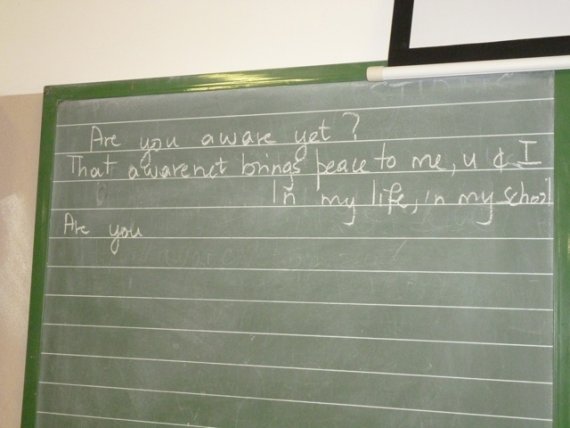 Are you aware yet?
That awarenet brings peace to me, u & I
In my life, in my school
Are you